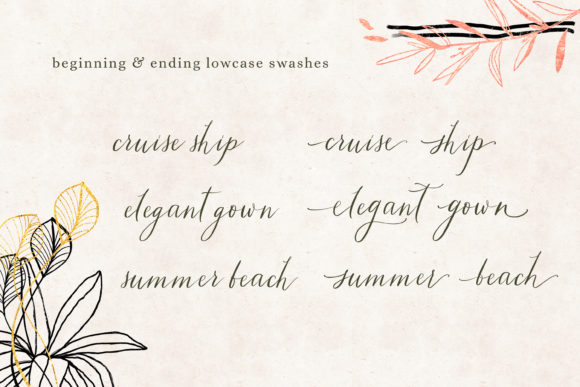 beginning & ending lowcase swashes
cruise ship cruise ship
elegant gown elegant gown
summer beach summer beach